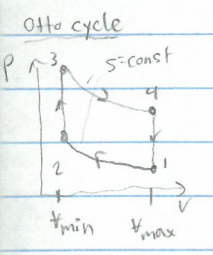 Otto cycle
P 3 S=const 4
2 1
V
Vmin Vmax